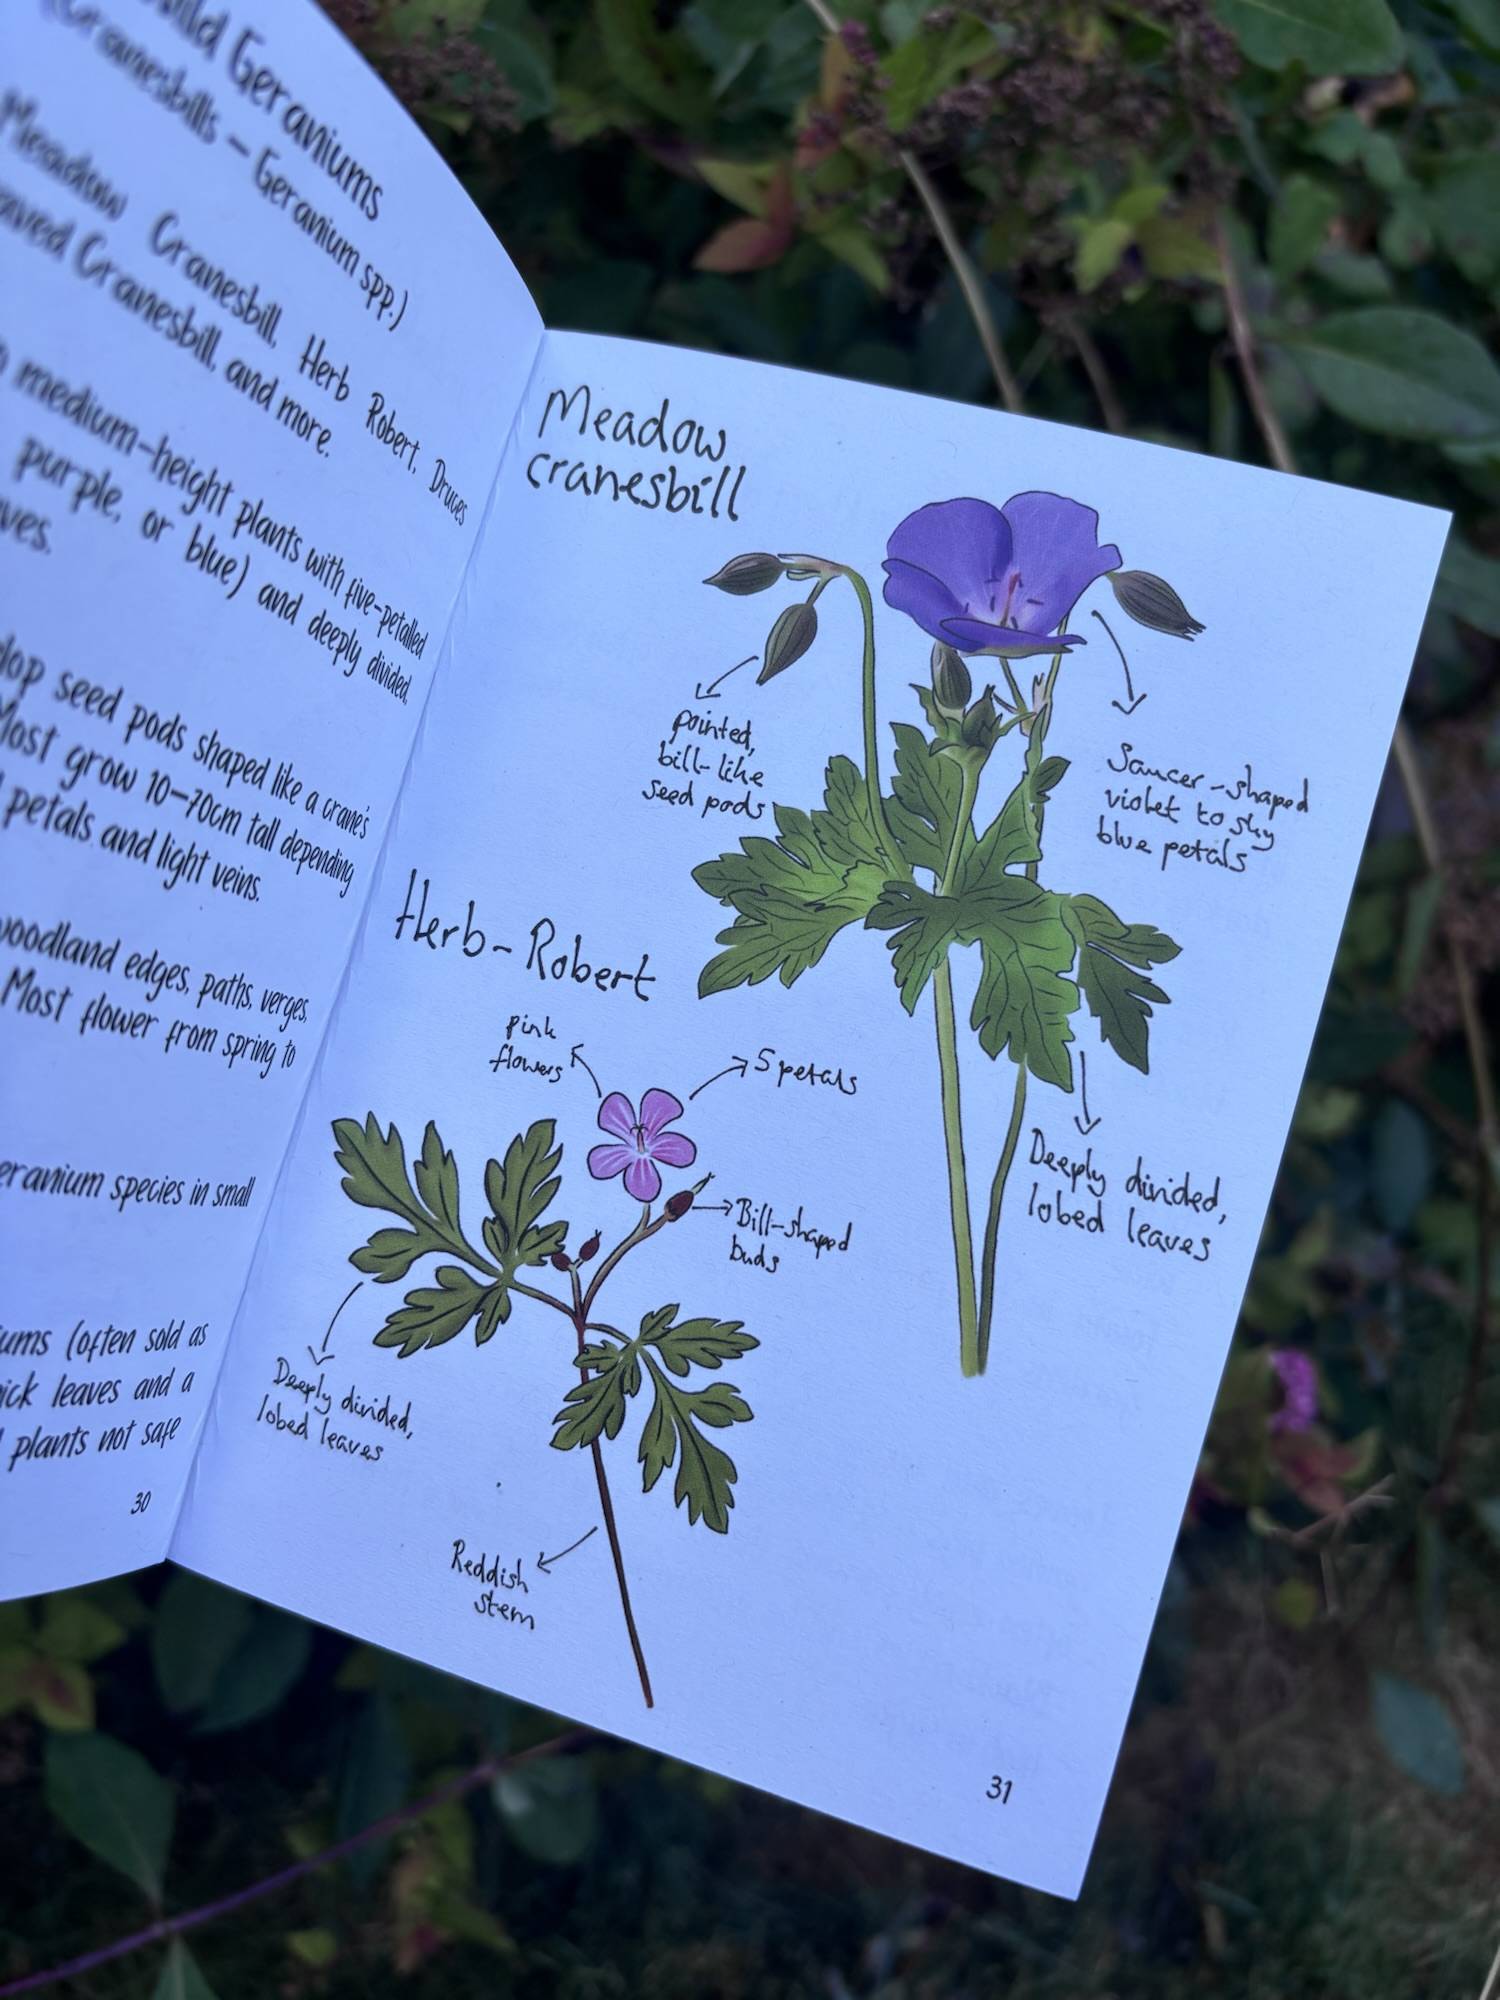 Wild Geraniums
(Cranesbills – Geranium spp.)
Meadow Cranesbill, Herb Robert, Druces
Cranesbill, and more.
medium-height plants with five-petalled
purple, or blue) and deeply divided,
seed pods shaped like a crane's
Most grow 10–70cm tall depending
petals and light veins.
woodland edges, paths, verges,
Most flower from spring to
species in small
(often sold as
leaves and a
plants not safe
30
Meadow
cranesbill
pointed,
bill-like
seed pods
Saucer-shaped
violet to sky
blue petals
Deeply divided,
lobed leaves
Herb-Robert
pink
flowers
5 petals
Bill-shaped
buds
Deeply divided,
lobed leaves
Reddish
stem
31